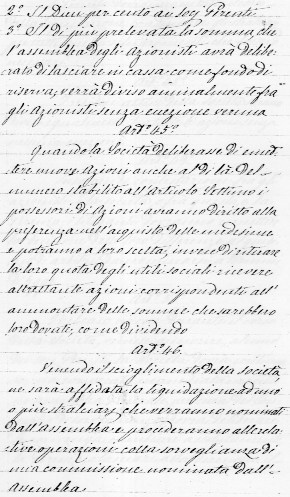 2.º Il Dieci per cento ai Socj Gerenti
3.º Il di più prelevata la somma, che
l'assemblea degli Azionisti avrà delibe-
rato di lasciare in cassa come fondo di
riserva, verrà diviso annualmente fra
gli Azionisti senza eccezione veruna
Art.º 45.º
Quando la Società deliberasse di emet-
tere nuove Azioni anche al di là del
numero stabilito all'Articolo Settimo i
possessori di Azioni avranno diritto alla
preferenza nell'acquisto delle medesime
e potranno a loro scelta, invece di ritirare
la loro quota degli utili sociali ricevere
altrettante azioni corrispondenti all'
ammontare delle somme che sarebbero
loro dovute, come dividendo
Art.º 46.
Venendo il scioglimento della Società
ne sarà affidata la liquidazione ad uno
o più stralciarj che verranno nominati
dall'assemblea e procederanno alle rela-
tive operazioni colla sorveglianza di
una commissione nominata dall'
Assemblea